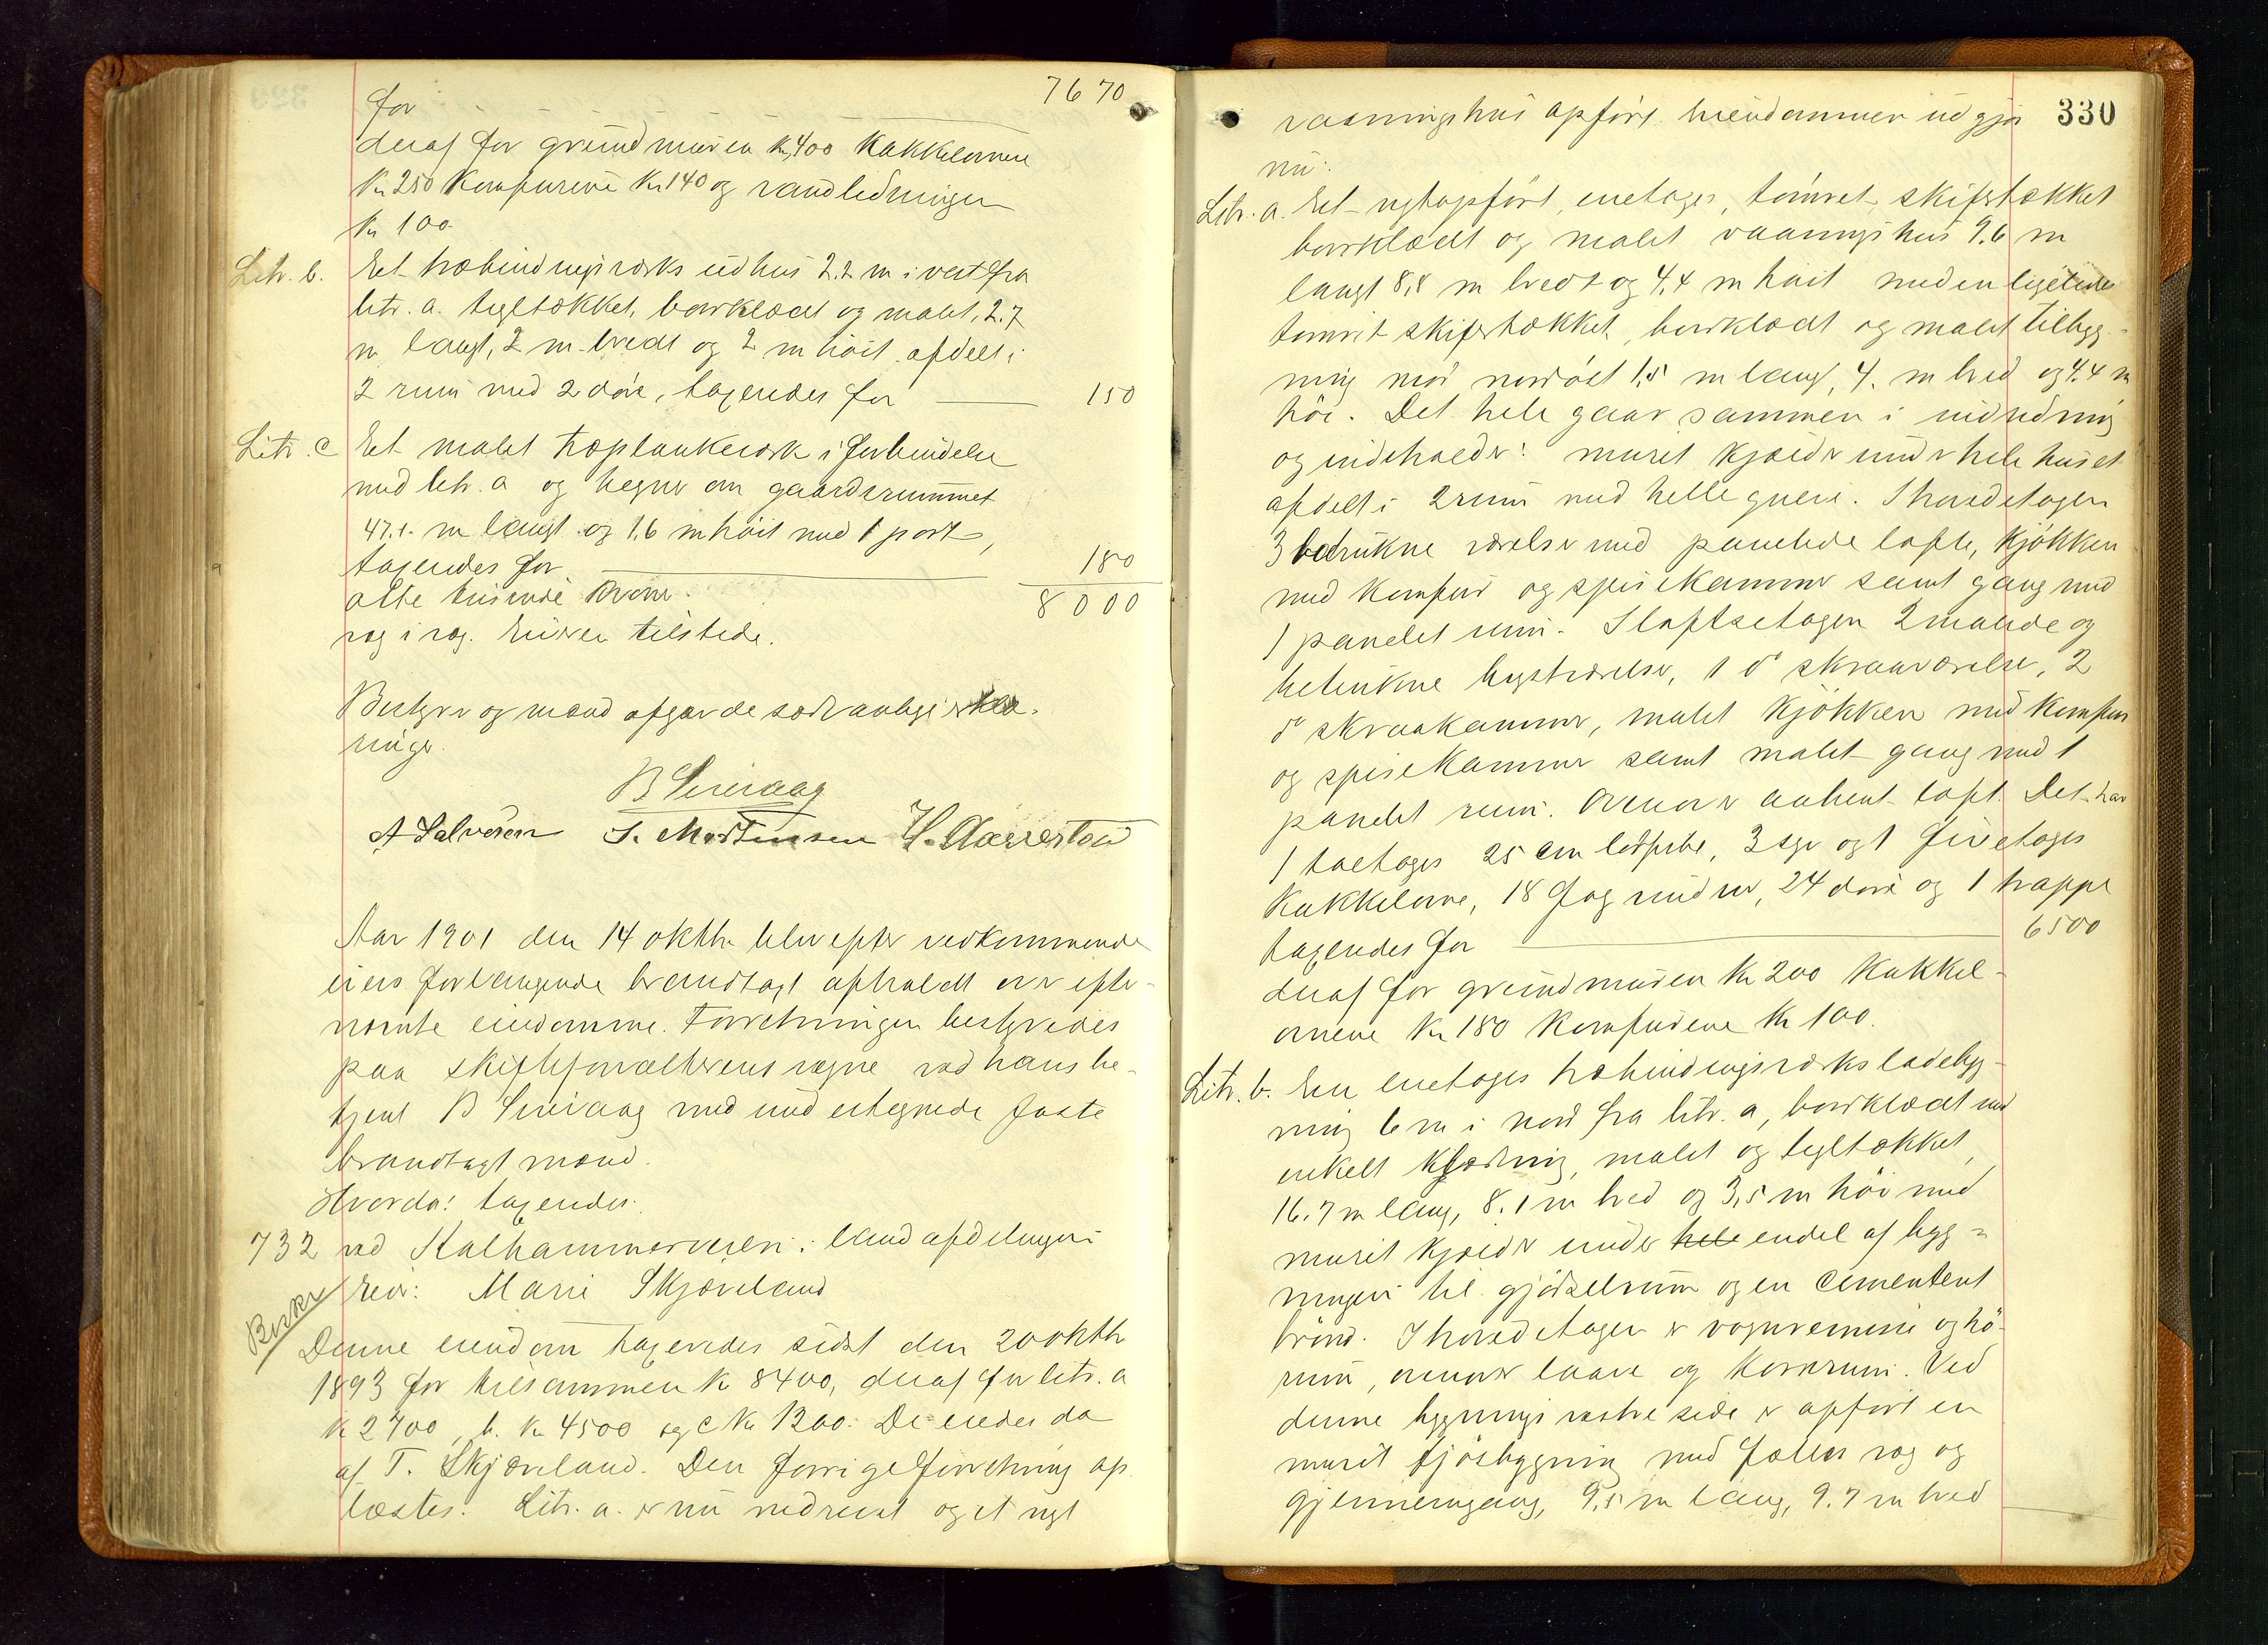 for 7670
deraf for grundmuren kr. 400 Kakkelovnene
Kr 250 Komfurene Kr 140 og vandledningen
Kr 100.
Litr. b. Et træbindingsværks udhus 2.2 m i vest fra
litr. a. tegltækket, bordklædt og malet, 2.7
m langt, 2 m bredt og 2 m høit afdelt i
2 rum med 2 døre, taxeredes for 150
Litr. c Et malet træplankeværk i forbindelse
med litr. a og hegner om gaardsrummet
47.1. m langt og 1.6 m høit med 1 port,
taxeredes for 180
otte tusinde kroner. 8000
Eieren tilstede.
Bestyrer og mænd afgav de sædvanlige erklæ-
ringer.
B Sneraag
A Salvesen S. Mortensen H. Aarrestad
Aar 1901 den 14 oktbr blev efter vedkommende
eiers forlangende brandtaxt afholdt over efter-
nævnte eiendomme. Forretningen bestyredes
paa skifteforvalterens vegne ved hans be-
tjent B Sneraag med undertegnede faste
brandtaxtmænd.
Hvorda! taxeredes:
732 ved Kalhammerveien i landafdelingen
Beskr Eier: Marie Skjæveland
Denne eiendom taxeredes sidst den 20 oktbr
1893 for tilsammen Kr 8400, deraf for litr. a
Kr 2700, b. Kr 4500 og c Kr 1200. De eiedes da
af T. Skjæveland. Den forrige forretning op-
læstes. Litr. a. er nu nedrevet og et nyt
330
vaaningshus opført. Eiendommen udgjør
nu:
Litr. a. Et nytopført, enetages, tømret, skifertækket
bordklædt og malet vaaningshus 9.6 m
langt 8,8 m bredt og 4,4 m høit med en ligeledes
tømret skifertækket, bordklædt og malet tilbyg-
ning mod nordøst 1,5 m lang, 4. m bred og 4.4 m
høi. Det hele gaar sammen i indredning
og indeholder: muret kjælder under hele huset
afdelt i 2 rum med helle gulv. I hovedetagen
3 betrukne værelser med panelede lofte, kjøkken
med komfur og spisekammer samt gang med
1 panelet rum. I loftsetagen 2 malede og
betrukne kvistværelser, 1 do skraaværelse, 2
do skraakammer, malet kjøkken med komfur
og spisekammer samt malet gang med 1
panelet rum. Ovenover aabent loft. Det har
1 toetages 25 cm ledpibe, 3 og 1 fireetages
Kakkelovne, 18 fag vinduer, 24 døre og 1 trappe
taxeredes for 6500
deraf for grundmuren Kr 200 Kakkel-
ovnene Kr 180 Komfurene Kr 100.
Litr. b. En enetages træbindingsværks ladebyg-
ning 6 m i nord fra litr. a, bordklædt med
enkelt klædning, malet og tegltækket,
16.7 m lang, 8.1 m bred og 3,5 m høi med
muret kjælder under hele endel af byg-
ningen til gjødselrum og en cementert
brønd. I hovedetagen er vognremise og hø-
rum, ovenover laave og kornrum. Ved
denne bygnings vestre side er opført en
muret fjøsbygning med fælles væg og
gjennemgang, 9,5 m lang, 9.7 m bred